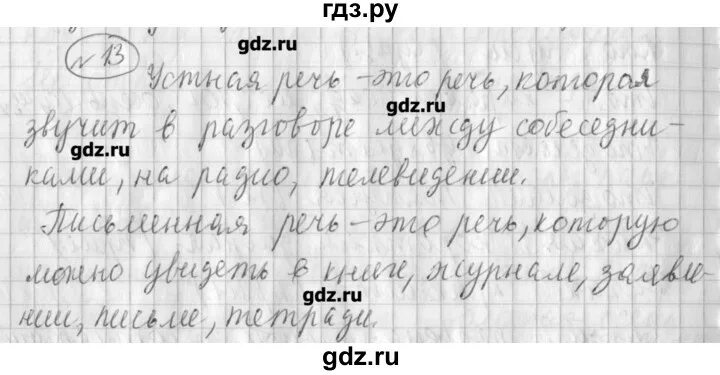 гдз.ру
gdz.ru
№ 13
Устная речь - это речь, которая
gdz.ru
звучит в разговоре между собеседни-
gdz.ru
ками, на радио, телевидении.
gdz.ru
Письменная речь - это речь, которую
можно увидеть в книге, журнале, заявле-
gdz.ru
нии, письме, тетради.
gdz.ru